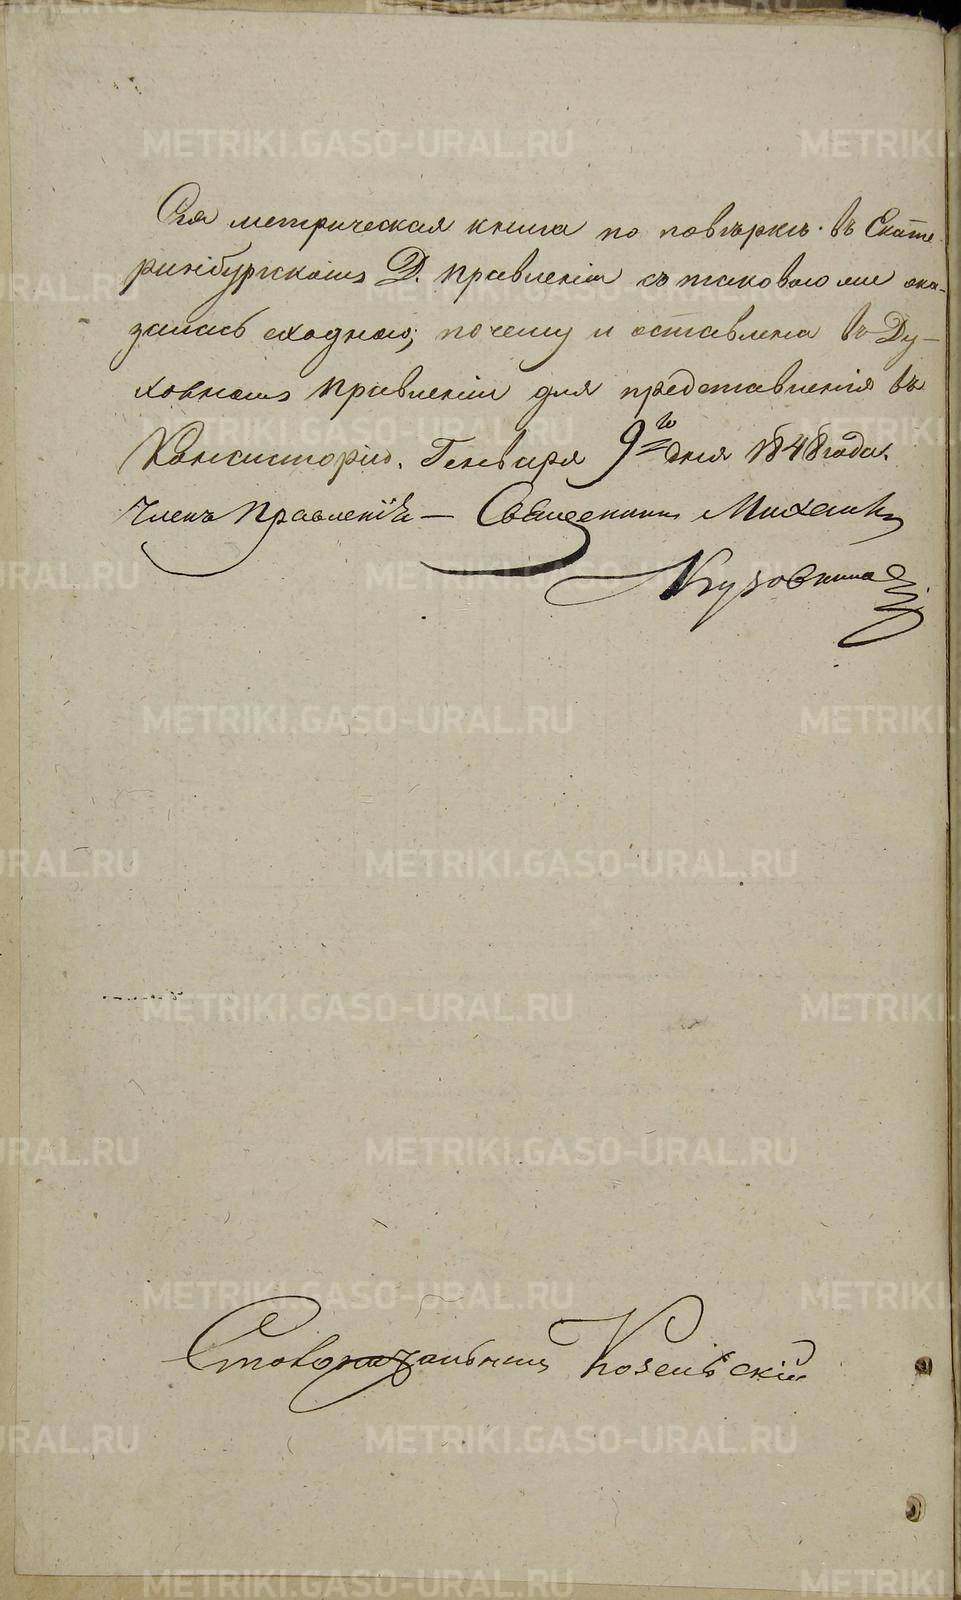 Сія метрическая книга по повѣркѣ въ Екате-
ринбургскомъ Д. Правленіи съ таковою же ока-
залась сходною, почему и оставлена въ Ду-
ховномъ Правленіи для представленія въ
Консисторію. Генваря 9го дня 1848 года.
Членъ Правленія – Священникъ Михаилъ
Кузовкина
Столоначальникъ Козельскій
METRIKI.GASO-URAL.RU